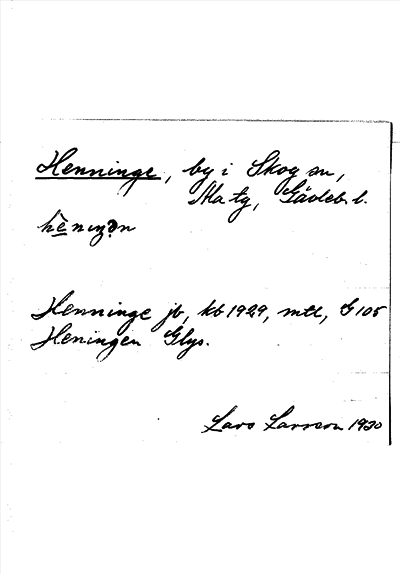 Henninge, by i Skog sn,
Ma tg, Gävleb. l.
hènıŋən
Henninge jb, kb 1929, mtl, G 105
Heningen Glys.
Lars Larsson 1930